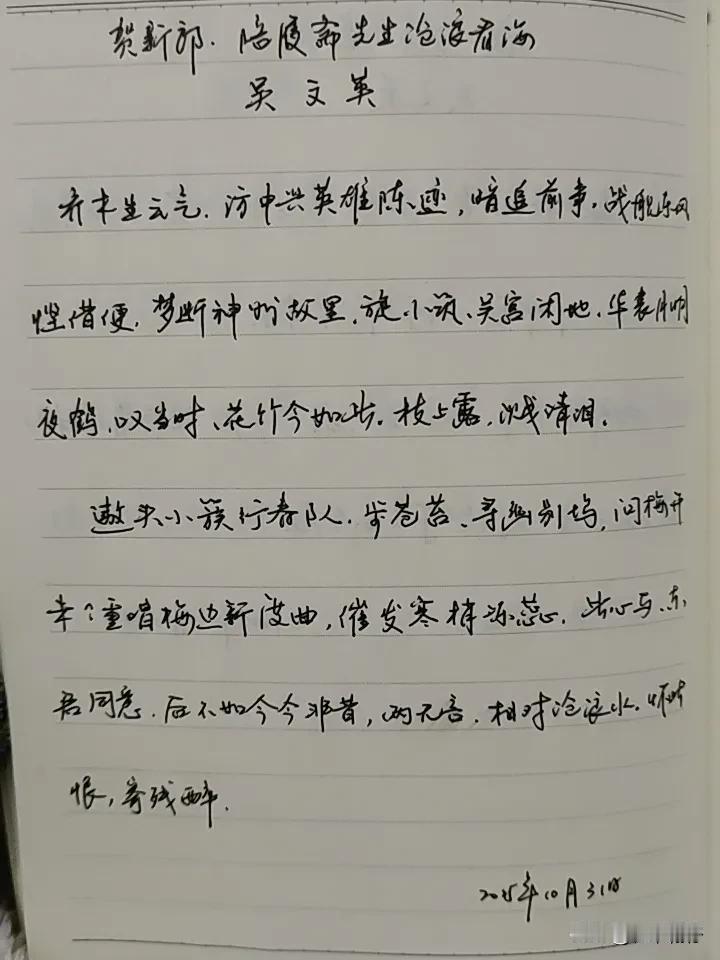 贺新郎.陪履斋先生沧浪看海
吴文英
乔木生云气.访中兴英雄陈迹,暗追前事.战舰东风
悭借便.梦断神州故里.旋小筑、吴宫闲地.华表月明
夜鹤.叹当时、花竹今如此.枝上露,溅清泪.
遨头小簇行春队.步苍苔、寻幽别坞,问梅开
未?重唱梅边新度曲,催发寒梢冻蕊.此心与、东
君同意.后不如今今非昔,两无言.相对沧浪水.怀此
恨,寄残醉.
2025年10月31日